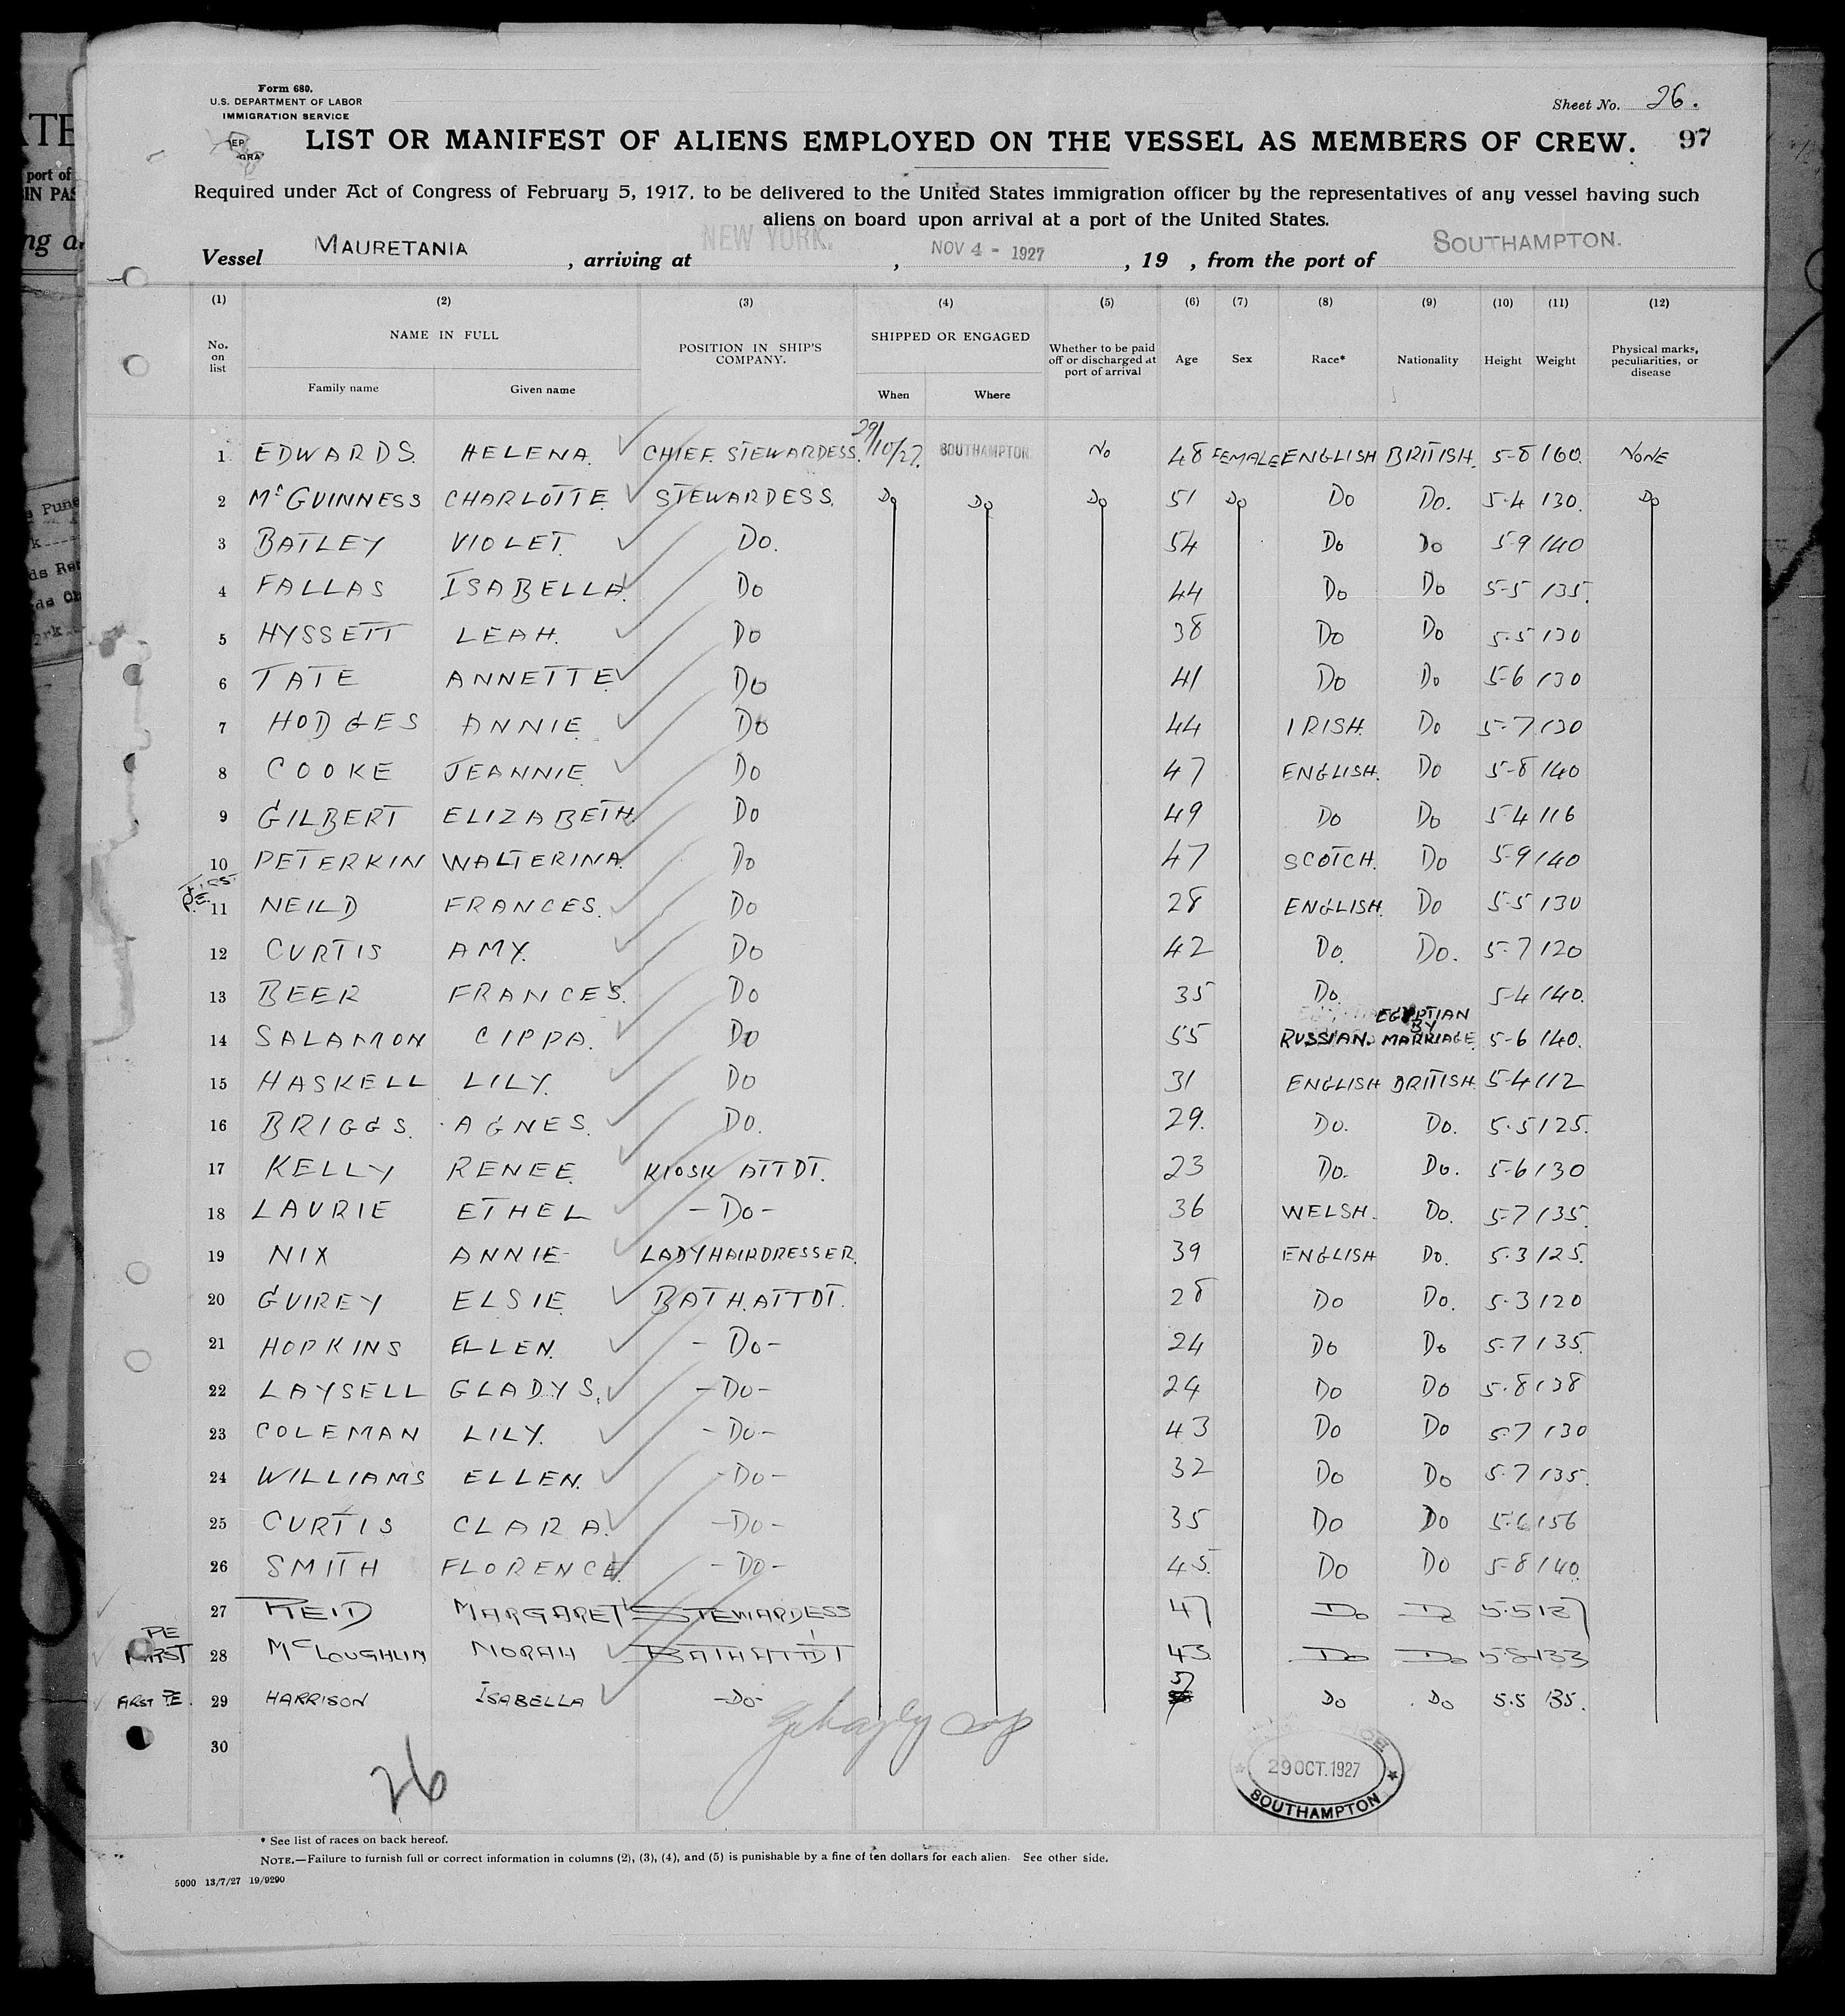 Form 680.
U.S. DEPARTMENT OF LABOR
IMMIGRATION SERVICE
Sheet No. 26.
LIST OR MANIFEST OF ALIENS EMPLOYED ON THE VESSEL AS MEMBERS OF CREW. 97
Required under Act of Congress of February 5, 1917, to be delivered to the United States immigration officer by the representatives of any vessel having such
aliens on board upon arrival at a port of the United States.
Vessel MAURETANIA, arriving at NEW YORK., NOV 4 - 1927, 19 , from the port of SOUTHAMPTON.
(1) (2) (3) (4) (5) (6) (7) (8) (9) (10) (11) (12)
No. on list NAME IN FULL Family name Given name POSITION IN SHIP'S COMPANY. SHIPPED OR ENGAGED When Where Whether to be paid off or discharged at port of arrival Age Sex Race* Nationality Height Weight Physical marks, peculiarities, or disease
1 EDWARDS. HELENA. CHIEF. STEWARDESS. 29/10/27. SOUTHAMPTON. No 48 FEMALE ENGLISH BRITISH. 5-8 160. NONE
2 McGUINNESS CHARLOTTE. STEWARDESS. Do Do Do 51 Do Do Do. 5-4 130. Do
3 BATLEY VIOLET. Do. 54 Do Do 5-9 140
4 FALLAS ISABELLA. Do 44 Do Do 5-5 135.
5 HYSSETT LEAH. Do 38 Do Do 5-5 130
6 TATE ANNETTE Do 41 Do Do 5-6 130
7 HODGES ANNIE. Do 44 IRISH. Do 5-7 130
8 COOKE JEANNIE. Do 47 ENGLISH. Do 5-8 140
9 GILBERT ELIZABETH. Do 49 Do Do 5-4 116
10 PETERKIN WALTERINA. Do 47 SCOTCH. Do 5-9 140
FIRST
PE. 11 NEILD FRANCES. Do 28 ENGLISH. Do 5-5 130
12 CURTIS AMY. Do 42 Do. Do. 5-7 120
13 BEER FRANCES. Do 35 Do. 5-4 140.
14 SALAMON CIPPA. Do 55 RUSSIAN. EGYPTIAN BY MARRIAGE. 5-6 140.
15 HASKELL LILY. Do 31 ENGLISH BRITISH. 5-4 112
16 BRIGGS. AGNES. Do. 29. Do. Do. 5.5 125.
17 KELLY RENEE. KIOSK ATTDT. 23 Do. Do. 5-6 130
18 LAURIE ETHEL - Do - 36 WELSH. Do. 5-7 135.
19 NIX ANNIE LADYHAIRDRESSER. 39 ENGLISH Do. 5.3 125.
20 GUIREY ELSIE. BATH. ATTDT. 28 Do Do. 5.3 120
21 HOPKINS ELLEN. - Do - 24 Do Do 5-7 135.
22 LAYSELL GLADYS. - Do - 24 Do Do 5.8 138
23 COLEMAN LILY. - Do - 43 Do Do 5.7 130
24 WILLIAMS ELLEN. - Do - 32 Do Do 5.7 135.
25 CURTIS CLARA. - Do - 35 Do Do 5.6 156
26 SMITH FLORENCE. - Do - 45. Do Do 5-8 140.
27 REID MARGARET STEWARDESS 47 Do Do 5.5 127
PE
FIRST 28 McLOUGHLIN NORAH BATH ATTDT 43 Do Do 5-8 133
FIRST PE. 29 HARRISON ISABELLA - Do - 57 Do Do 5.5 135.
30
26
29 OCT. 1927
SOUTHAMPTON
* See list of races on back hereof.
NOTE.—Failure to furnish full or correct information in columns (2), (3), (4), and (5) is punishable by a fine of ten dollars for each alien. See other side.
5000 13/7/27 19/9290